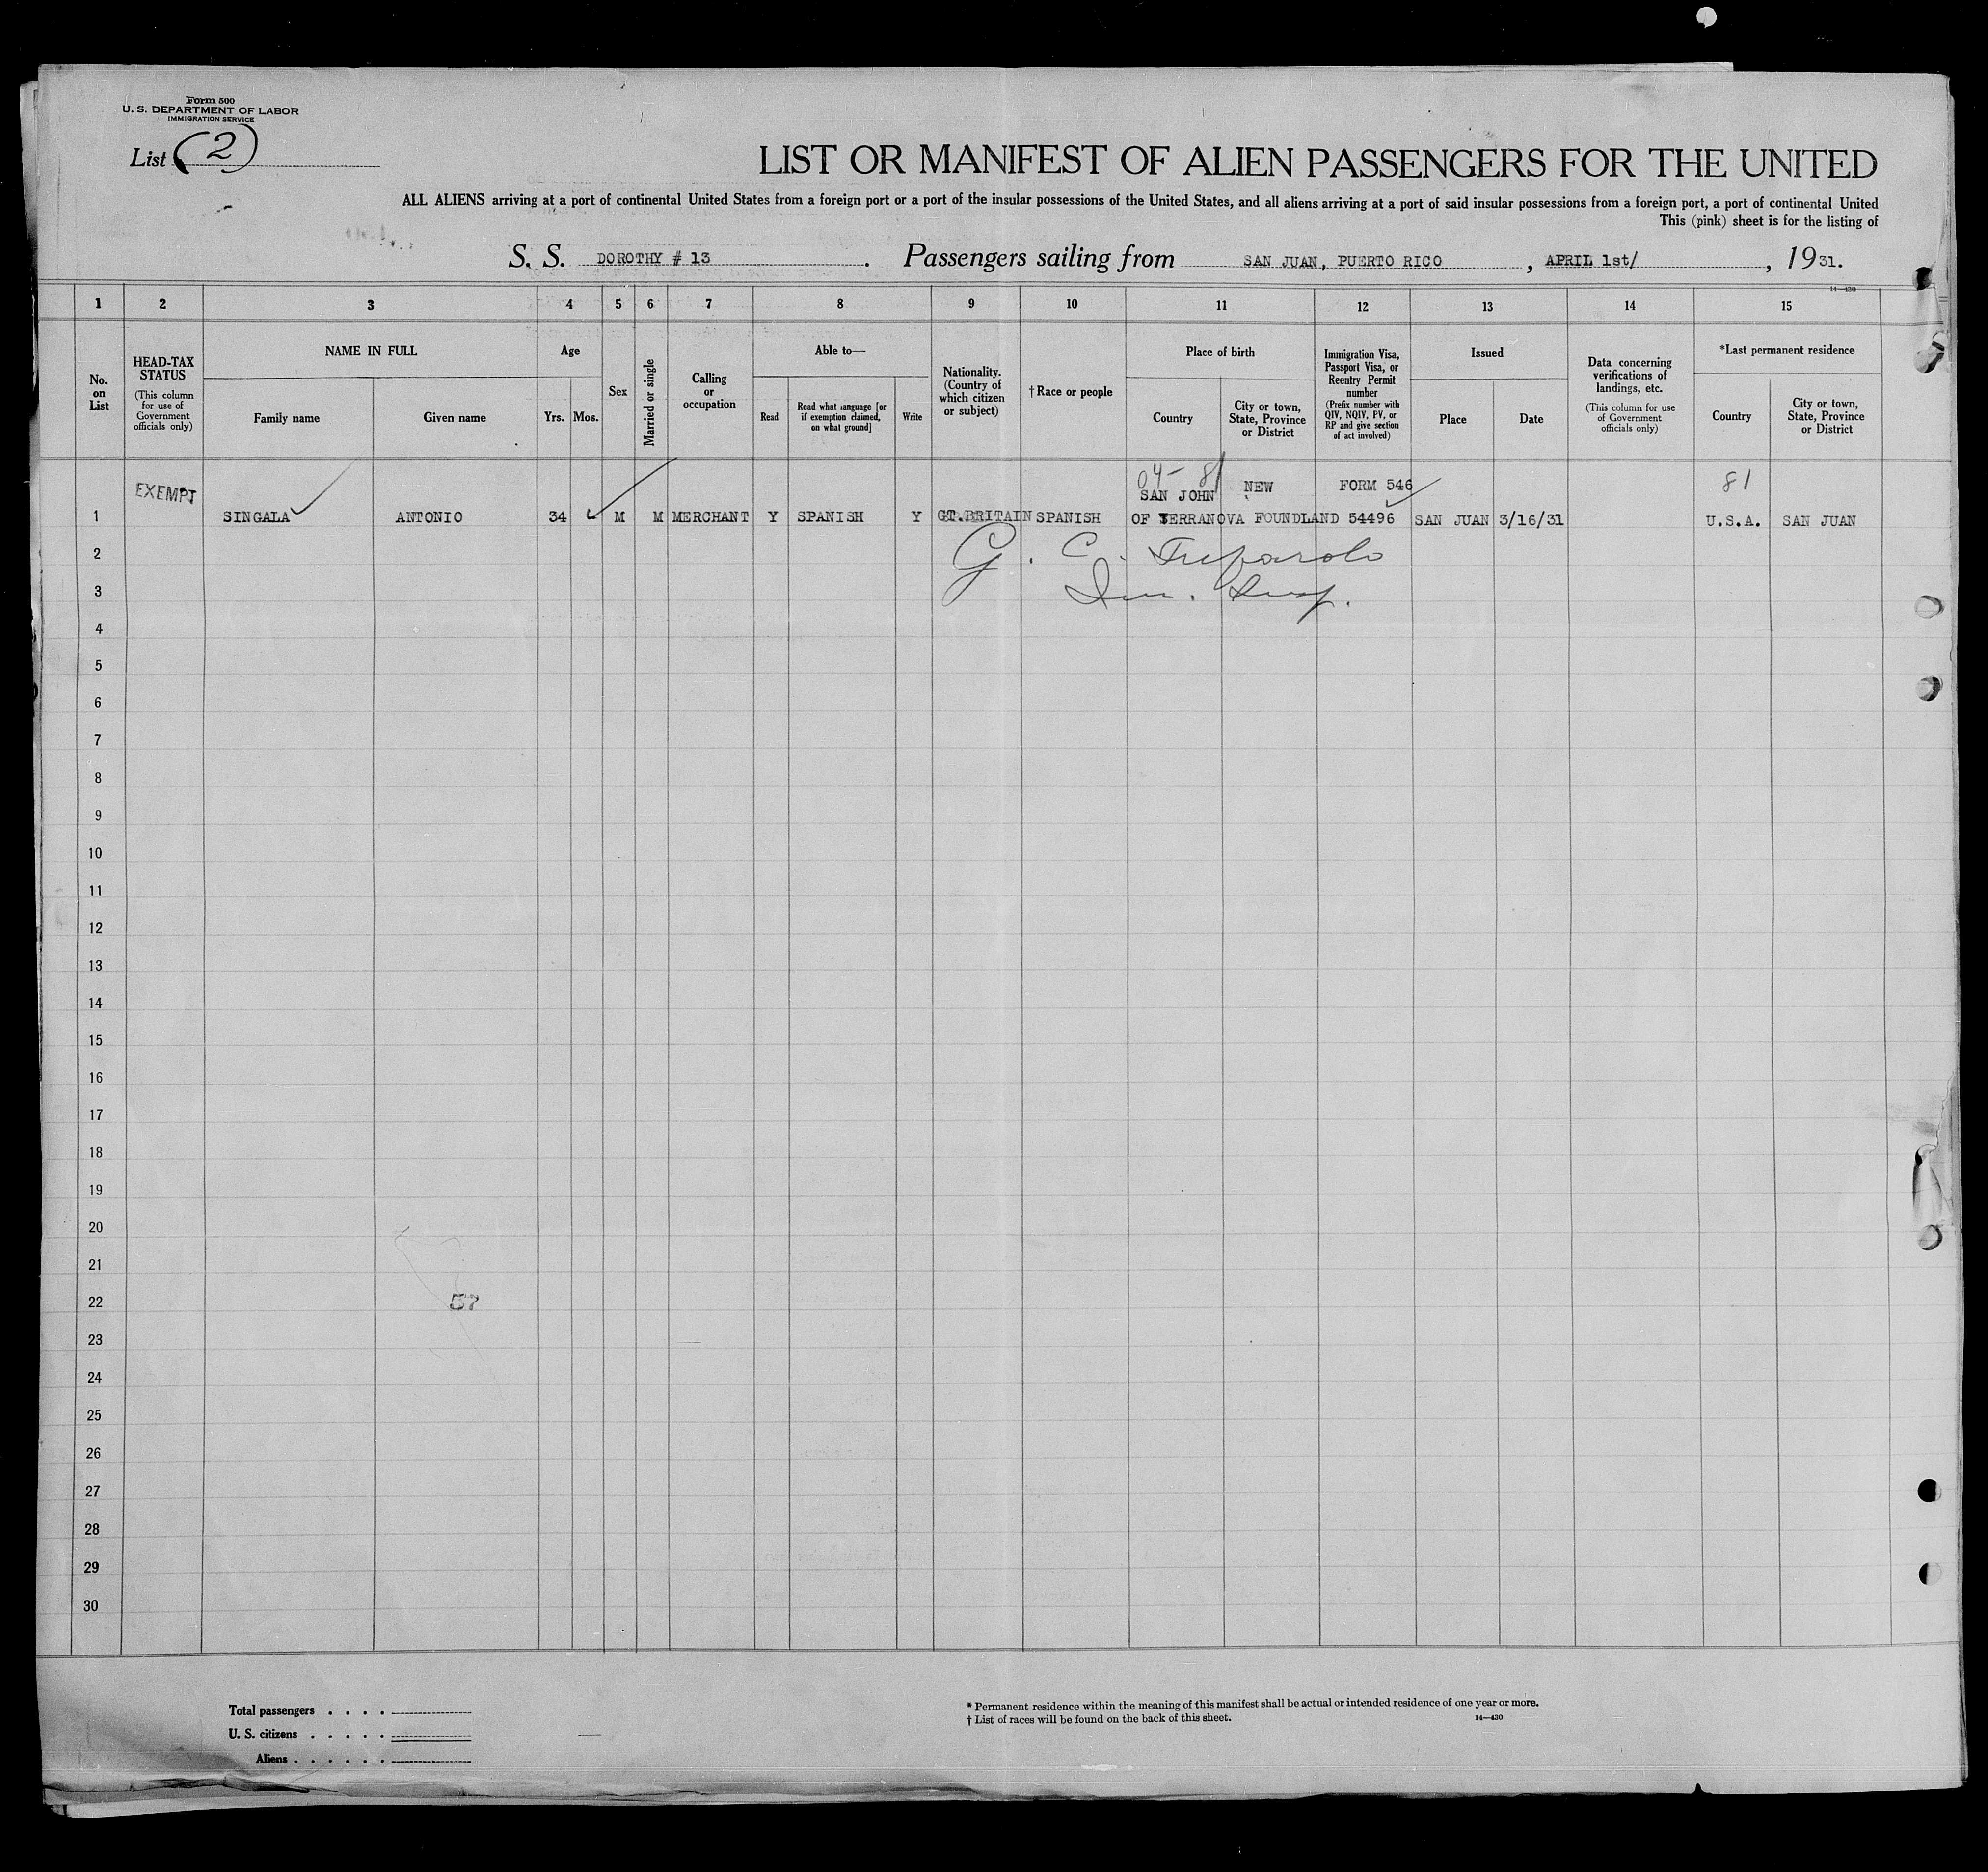 Form 500
U. S. DEPARTMENT OF LABOR
IMMIGRATION SERVICE
List (2)
LIST OR MANIFEST OF ALIEN PASSENGERS FOR THE UNITED
ALL ALIENS arriving at a port of continental United States from a foreign port or a port of the insular possessions of the United States, and all aliens arriving at a port of said insular possessions from a foreign port, a port of continental United
This (pink) sheet is for the listing of
S. S. DOROTHY # 13 . Passengers sailing from SAN JUAN, PUERTO RICO , APRIL 1st/ , 1931.
14—430
1 2 3 4 5 6 7 8 9 10 11 12 13 14 15
No. on List
HEAD-TAX STATUS
(This column for use of Government officials only)
NAME IN FULL
Family name
Given name
Age
Yrs.
Mos.
Sex
Married or single
Calling or occupation
Able to—
Read
Read what language [or if exemption claimed, on what ground]
Write
Nationality. (Country of which citizen or subject)
† Race or people
Place of birth
Country
City or town, State, Province or District
Immigration Visa, Passport Visa, or Reentry Permit number
(Prefix number with QIV, NQIV, PV, or RP and give section of act involved)
Issued
Place
Date
Data concerning verifications of landings, etc.
(This column for use of Government officials only)
*Last permanent residence
Country
City or town, State, Province or District
04- 81 81
EXEMPT SAN JOHN NEW FORM 546
1 SINGALA ANTONIO 34 M M MERCHANT Y SPANISH Y GT.BRITAIN SPANISH OF TERRANOVA FOUNDLAND 54496 SAN JUAN 3/16/31 U.S.A. SAN JUAN
2 G. C.
3 Im. Insp.
4
5
6
7
8
9
10
11
12
13
14
15
16
17
18
19
20
21
22 57
23
24
25
26
27
28
29
30
Total passengers . . . .
U. S. citizens . . . . .
Aliens . . . . . .
* Permanent residence within the meaning of this manifest shall be actual or intended residence of one year or more.
† List of races will be found on the back of this sheet.
14—430